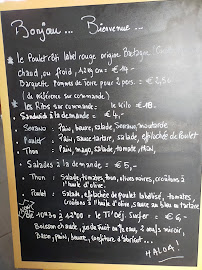 Bonjour... Bienvenue...
* Le Poulet rôti label rouge origine Bretagne
Chaud, ou froid, 1,2 kg env = € 14.-
Barquette Pommes de Terre pour 2 pers. = € 2,50
(de préférence sur commande)
* Les Ribs sur commande: le kilo € 18.-
* Sandwich à la demande = €
Serrano : Pain, beurre, salade, Serrano, moutarde
Poulet : Pain, sauce tartare, salade, effilochée de Poulet
Thon : Pain, mayo, salade, tomate, thon,
* Salades à la demande = € 5,-
Thon : Salade, tomates, thon, olives noires, croûtons à
l'huile d'olive.
Poulet : Salade, effilochée de poulet labellisé, tomates,
croûtons à l'huile d'olive, sauce au bleu ou tartare
10H30 à 12H00 : le Ti'Déj. Surfer = € 6,-
Boisson chaude, jus de fruit 100%, 2 œufs miroir!
Bacon, pain, beurre, confiture d'abricot...
HALOA!